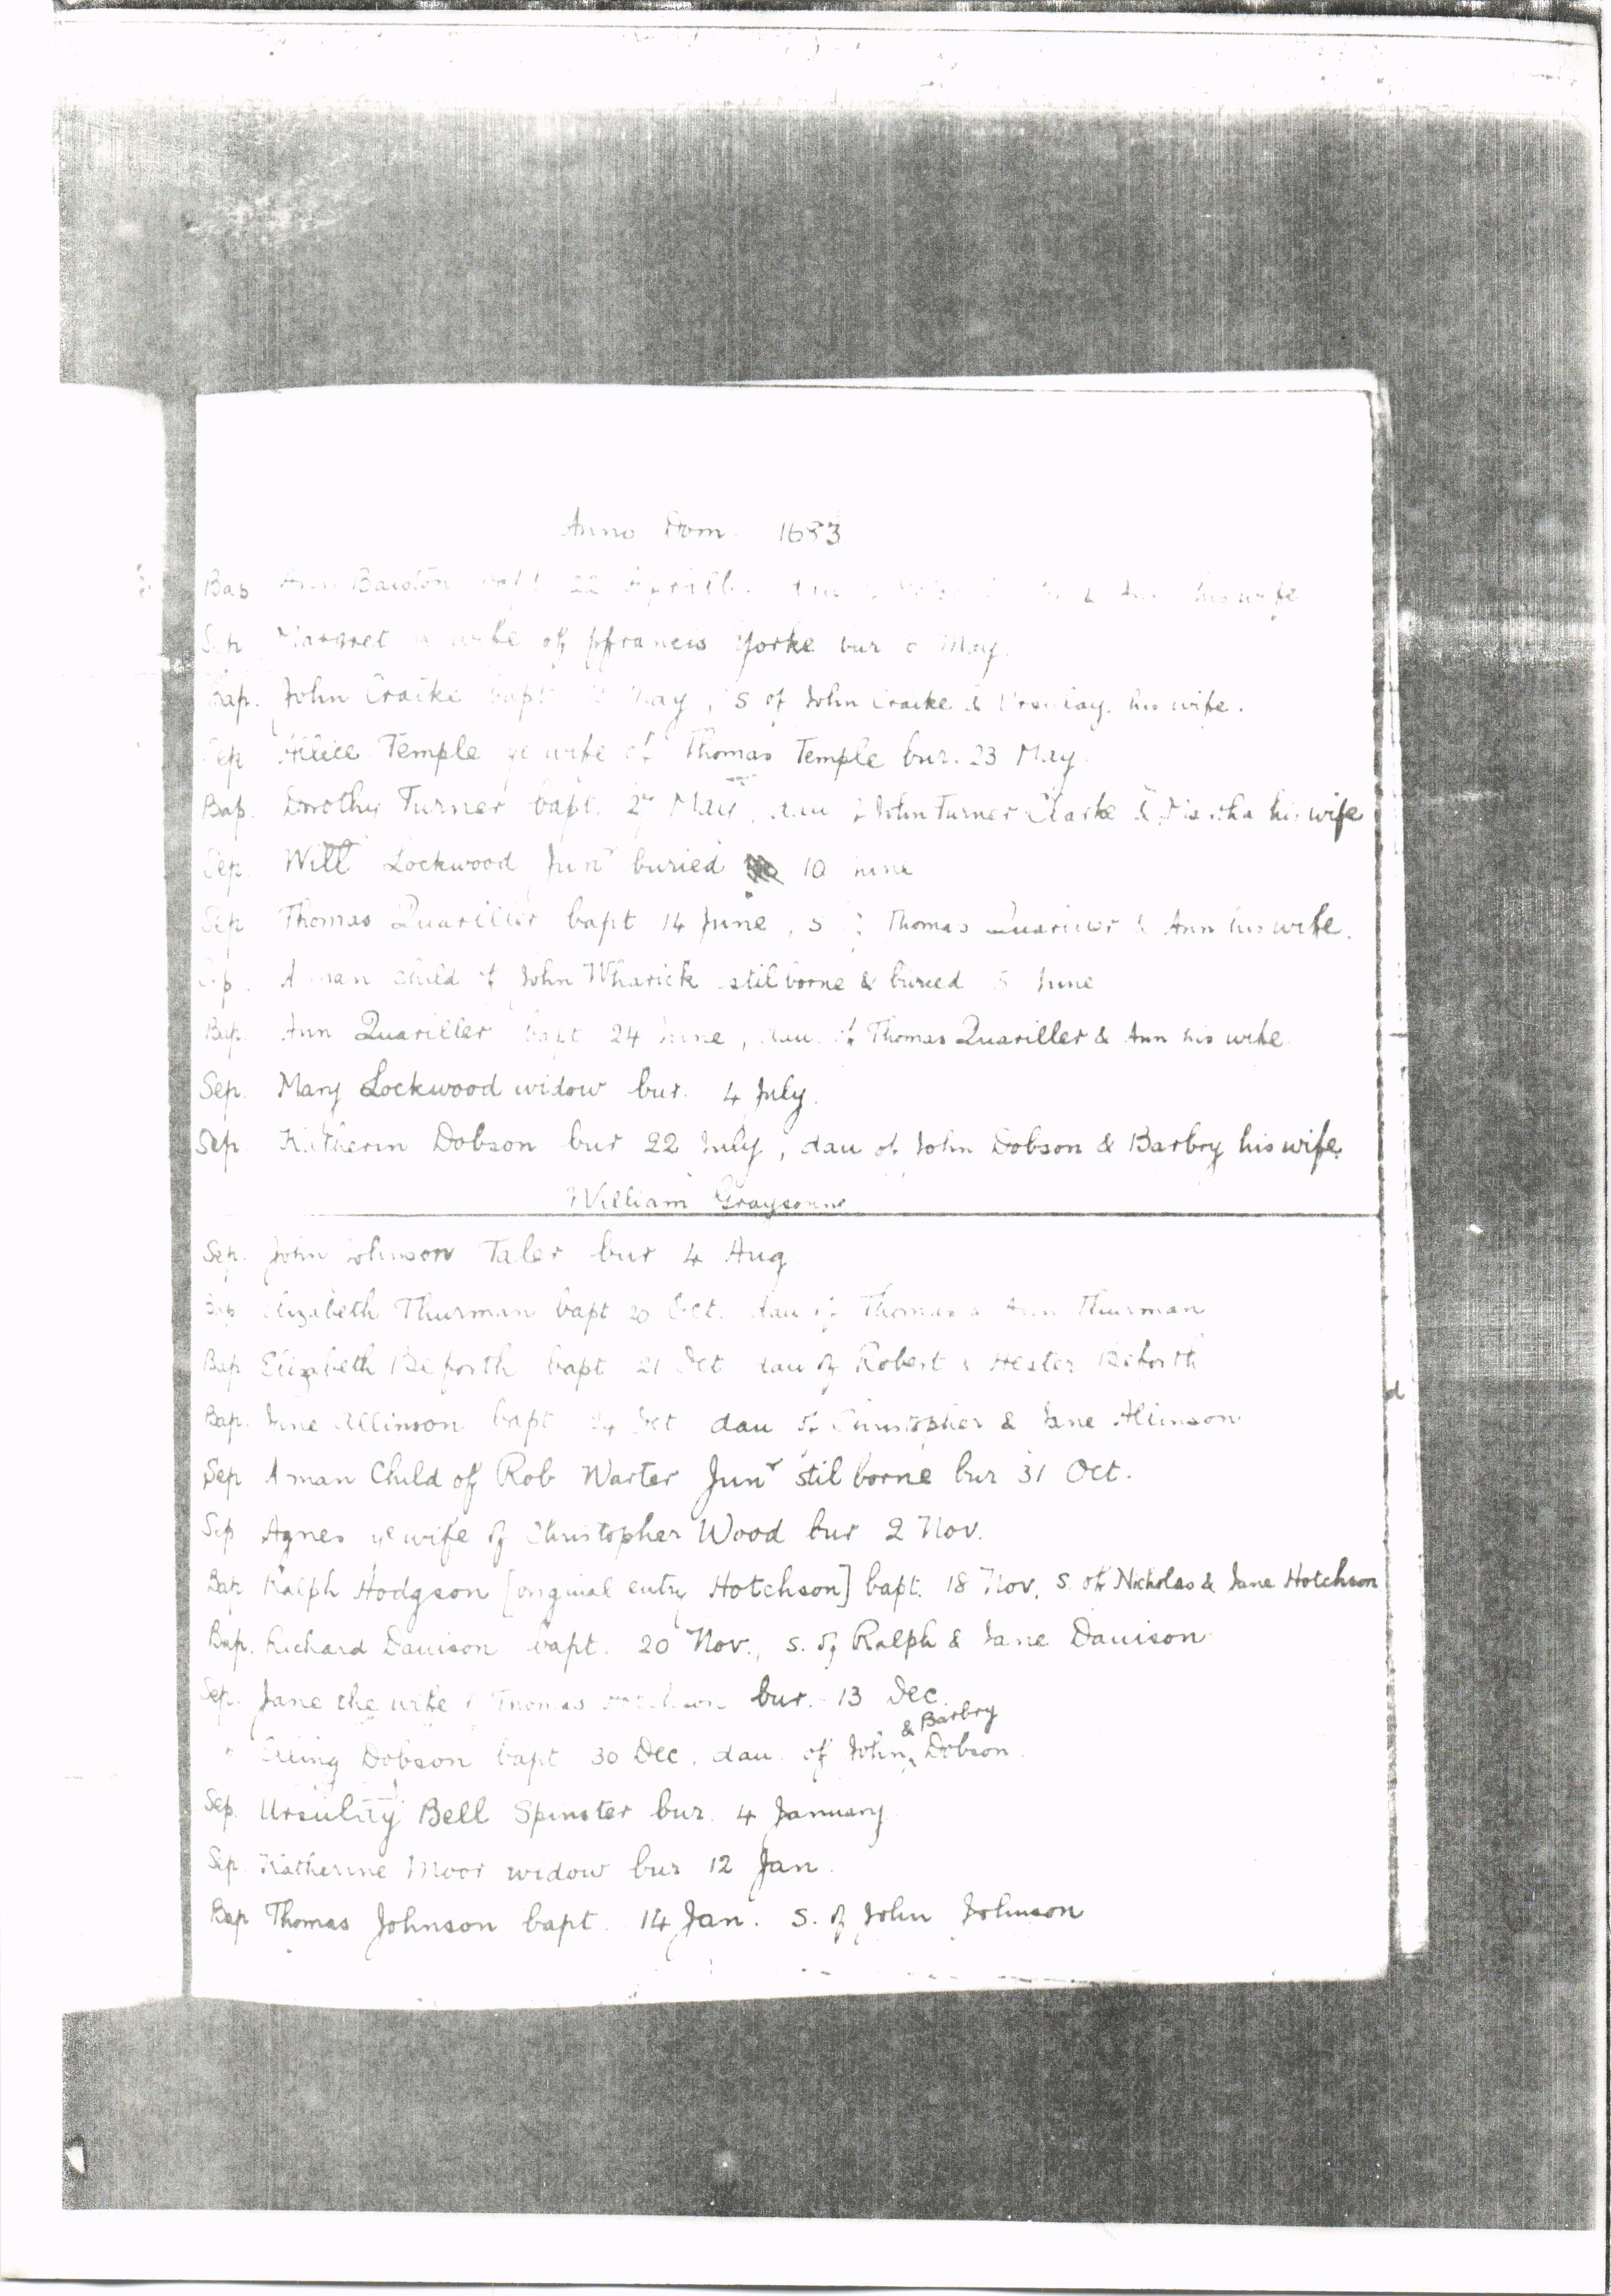 Anno Dom. 1683
Bap Ann Barston bapt 22 Aprill. dau & Ann his wife
Sep Margret wife of ffrancis Yorke bur May.
Bap. John Craike bapt May, s of John Craike & his wife.
Sep Allice Temple ye wife of Thomas Temple bur. 23 May
Bap. Dorothy Turner bapt. May, dau of John Turner Clarke & Martha his wife
Sep. Will Lockwood Junr buried 10 June
Sep Thomas Quariller bapt 14 June, s of Thomas Quariller & Ann his wife.
Sep. A man child of John Wharick stilborne & buried June
Bap. Ann Quariller bapt 24 June, dau. of Thomas Quariller & Ann his wife
Sep. Mary Lockwood widow bur. 4 July.
Sep. Katherin Dobson bur 22 July, dau of John Dobson & Barbry his wife.
William Graysonne
Sep. John Johnson Taler bur 4 Aug
Bap Elizabeth Thurman bapt 20 Oct. dau of Thomas & Ann Thurman
Bap Elizabeth Beforth bapt 21 Oct dau of Robert & Hester Beforth
Bap. Jane Allinson bapt 24 Oct dau of Christopher & Jane Allinson
Sep A man Child of Rob Warter Junr stil borne bur 31 Oct.
Sep Agnes ye wife of Christopher Wood bur 2 Nov.
Bap Ralph Hodgson [original entry Hotchson] bapt. 18 Nov. s. of Nicholas & Jane Hotchson
Bap. Richard Davison bapt. 20 Nov., s. of Ralph & Jane Davison
Sep. Jane the wife of Thomas bur. 13 Dec.
" Elling Dobson bapt 30 Dec. dau. of John & Barbry Dobson.
Sep. Ursulay Bell Spinster bur. 4 January
Sep. Katherine Moor widow bur 12 Jan.
Bap Thomas Johnson bapt. 14 Jan. s. of John Johnson